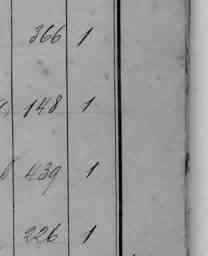 366 1
148 1
439 1
226 1